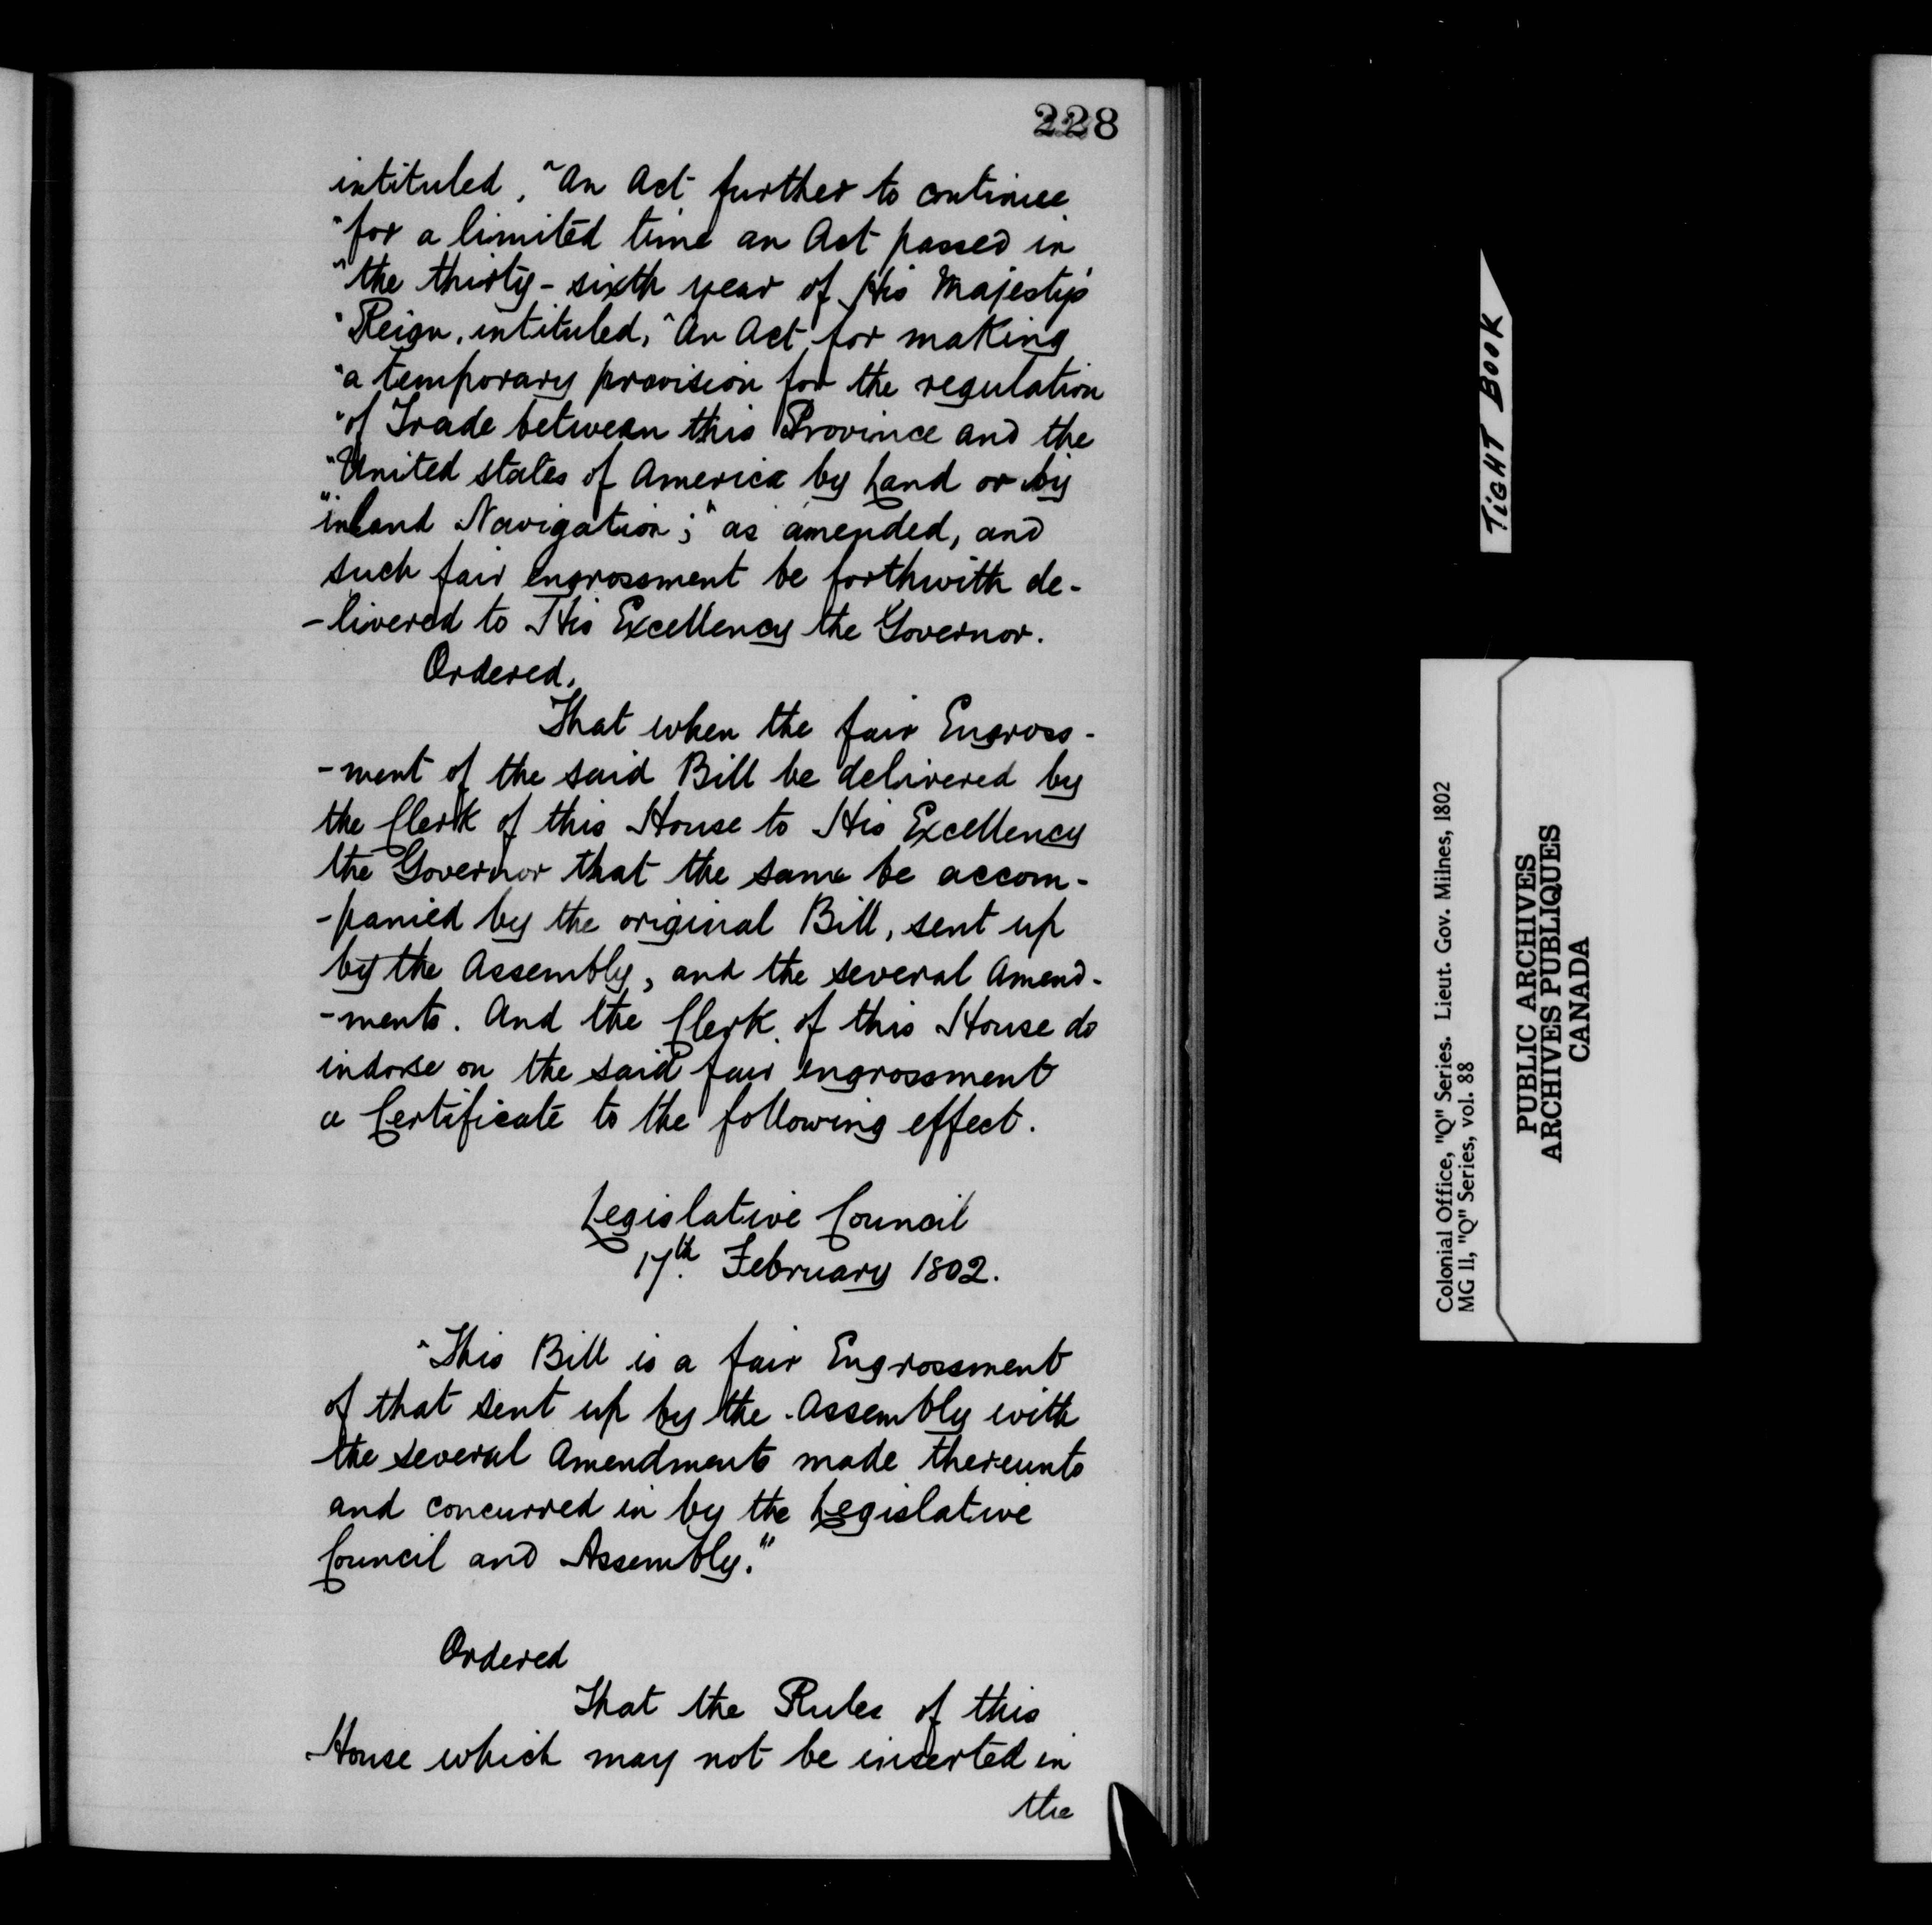 228
intituled, "An Act further to continue
"for a limited time an Act passed in
"the thirty-sixth year of His Majesty's
"Reign, intituled, "An Act for making
"a temporary provision for the regulation
"of Trade between this Province and the
"United states of America by Land or by
"inland Navigation;" as amended, and
such fair engrossment be forthwith de-
-livered to His Excellency the Governor.
Ordered,
That when the fair Engross-
-ment of the said Bill be delivered by
the Clerk of this House to His Excellency
the Governor that the same be accom-
-panied by the original Bill, sent up
by the Assembly, and the several Amend-
-ments. And the Clerk of this House do
indorse on the said fair engrossment
a Certificate to the following effect.
Legislative Council
17th February 1802.
"This Bill is a fair Engrossment
of that sent up by the Assembly with
the several Amendments made thereunto
and concurred in by the Legislative
Council and Assembly."
Ordered
That the Rules of this
House which may not be inserted in
the
TIGHT BOOK
Colonial Office, "Q" Series. Lieut. Gov. Milnes, 1802
MG 11, "Q" Series, vol. 88
PUBLIC ARCHIVES
ARCHIVES PUBLIQUES
CANADA